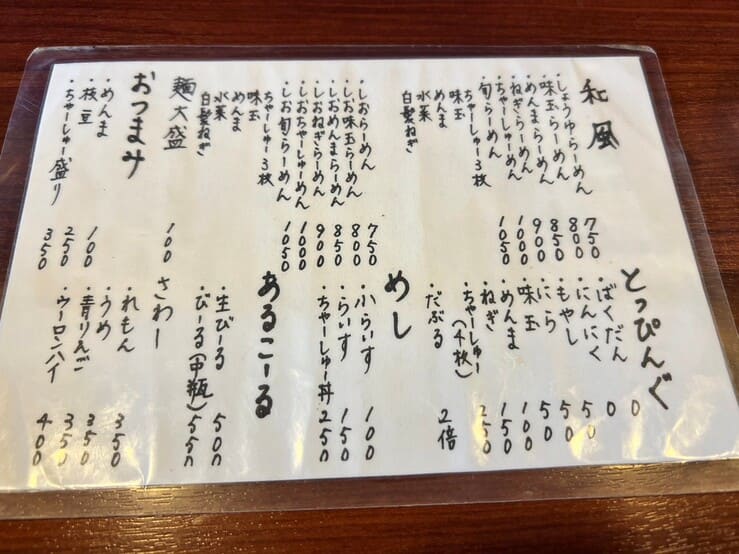 和風
・しょうゆらーめん 750
・味玉らーめん 800
・めんまらーめん 850
・ねぎらーめん 900
・ちゃーしゅーめん 1000
・旬らーめん 1050
ちゃーしゅー3枚
味玉
めんま
水菜
白髪ねぎ
・しおらーめん 750
・しお味玉らーめん 800
・しおめんまらーめん 850
・しおねぎらーめん 900
・しおちゃーしゅーめん 1000
・しお旬らーめん 1050
ちゃーしゅー3枚
味玉
めんま
水菜
白髪ねぎ
麺大盛 100
おつまみ
・めんま 100
・枝豆 250
・ちゃーしゅー盛り 350
とっぴんぐ
・ばくだん 0
・にんにく 0
・もやし 50
・にら 50
・味玉 50
・めんま 100
・ねぎ 150
・ちゃーしゅー(4枚) 250
・だぶる 2倍
めし
・小らいす 100
・らいす 150
・ちゃーしゅー丼 250
あるこーる
・生びーる 500
・びーる(中瓶) 550
さわー
・れもん 350
・うめ 350
・青りんご 350
・ウーロンハイ 400